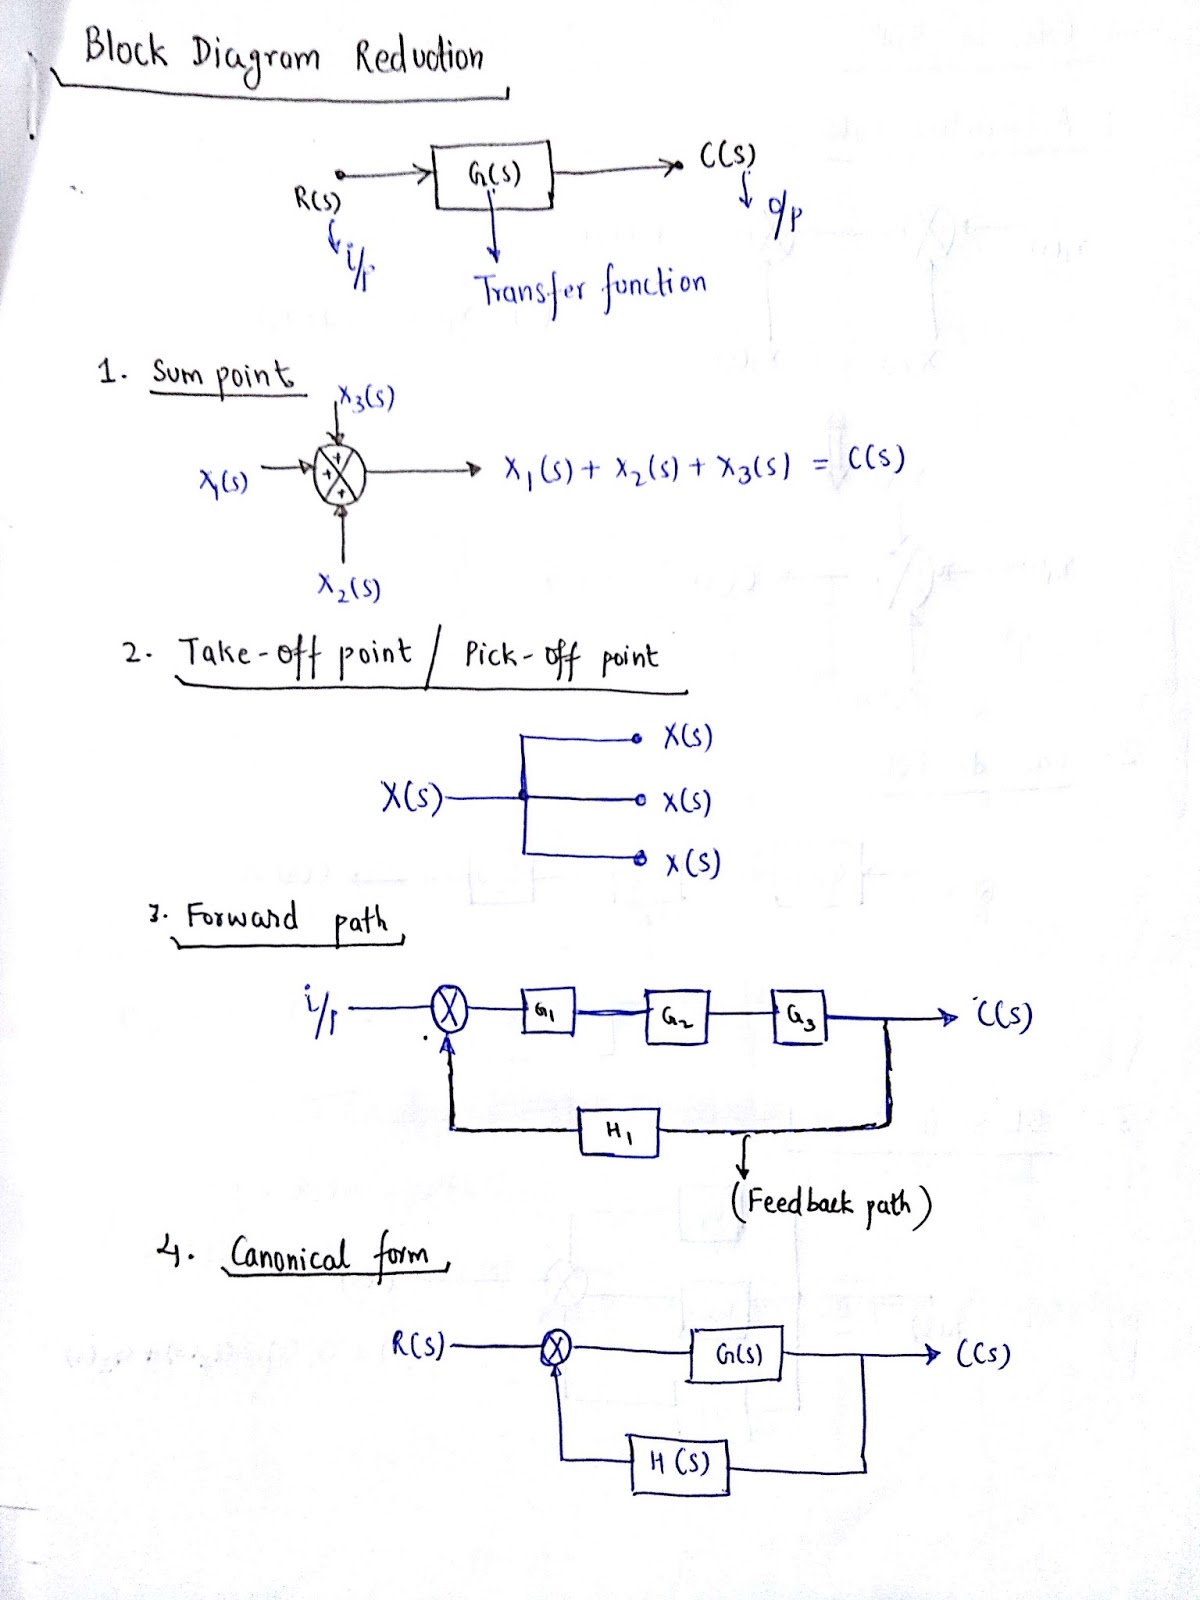 Block Diagram Reduction
R(s) G(s) C(s)
i/p o/p
Transfer function
1. Sum point
X3(s)
X1(s) X1(s) + X2(s) + X3(s) = C(s)
X2(s)
2. Take-off point / Pick-off point
X(s)
X(s) X(s)
X(s)
3. Forward path
i/p G1 G2 G3 C(s)
H1
(Feedback path)
4. Canonical form
R(s) G(s) C(s)
H(s)